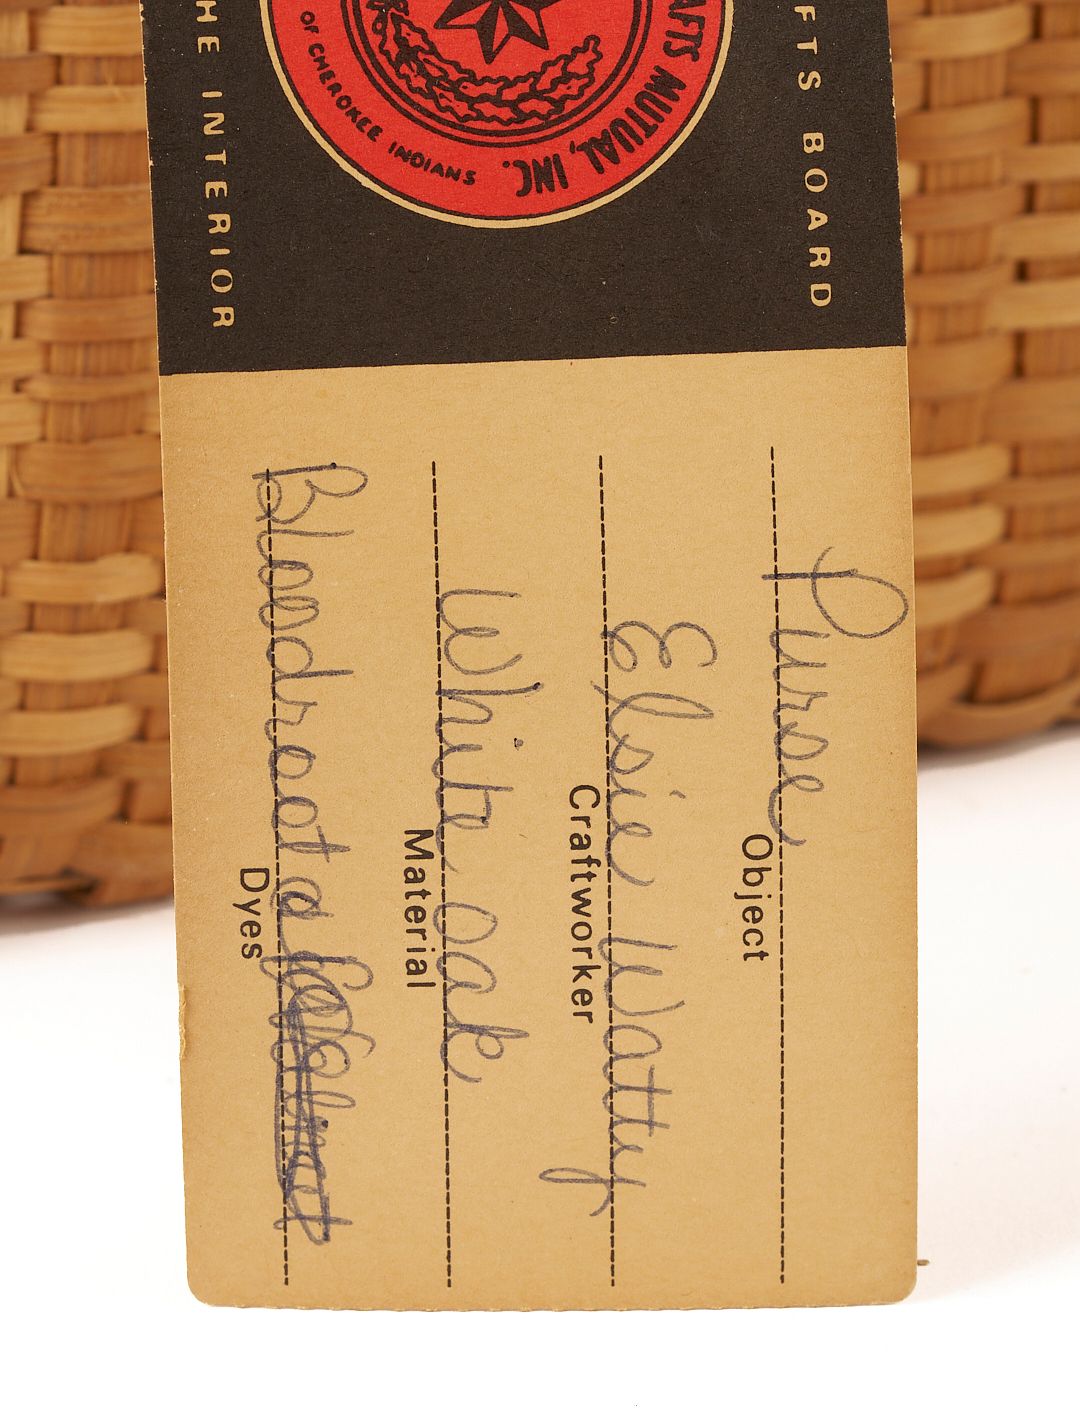 FTS BOARD
AFTS MUTUAL, INC.
OF CHEROKEE INDIANS
HE INTERIOR
Purse
Object
Elsie Watty
Craftworker
White Oak
Material
Bloodroot &
Dyes